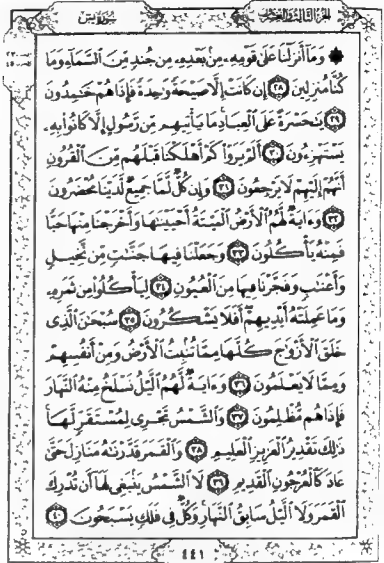 الجزء الثالث والعشرون
سورة يس
۞ وَمَآ أَنزَلْنَا عَلَىٰ قَوْمِهِۦ مِنۢ بَعْدِهِۦ مِن جُندٍ مِّنَ ٱلسَّمَآءِ وَمَا
كُنَّا مُنزِلِينَ ٢٨ إِن كَانَتْ إِلَّا صَيْحَةً وَٰحِدَةً فَإِذَا هُمْ خَٰمِدُونَ
٢٩ يَٰحَسْرَةً عَلَى ٱلْعِبَادِ مَا يَأْتِيهِم مِّن رَّسُولٍ إِلَّا كَانُوا۟ بِهِۦ
يَسْتَهْزِءُونَ ٣٠ أَلَمْ يَرَوْا۟ كَمْ أَهْلَكْنَا قَبْلَهُم مِّنَ ٱلْقُرُونِ
أَنَّهُمْ إِلَيْهِمْ لَا يَرْجِعُونَ ٣١ وَإِن كُلٌّ لَّمَّا جَمِيعٌ لَّدَيْنَا مُحْضَرُونَ
٣٢ وَءَايَةٌ لَّهُمُ ٱلْأَرْضُ ٱلْمَيْتَةُ أَحْيَيْنَٰهَا وَأَخْرَجْنَا مِنْهَا حَبًّا
فَمِنْهُ يَأْكُلُونَ ٣٣ وَجَعَلْنَا فِيهَا جَنَّٰتٍ مِّن نَّخِيلٍ
وَأَعْنَٰبٍ وَفَجَّرْنَا فِيهَا مِنَ ٱلْعُيُونِ ٣٤ لِيَأْكُلُوا۟ مِن ثَمَرِهِۦ
وَمَا عَمِلَتْهُ أَيْدِيهِمْ أَفَلَا يَشْكُرُونَ ٣٥ سُبْحَٰنَ ٱلَّذِى
خَلَقَ ٱلْأَزْوَٰجَ كُلَّهَا مِمَّا تُنۢبِتُ ٱلْأَرْضُ وَمِنْ أَنفُسِهِمْ
وَمِمَّا لَا يَعْلَمُونَ ٣٦ وَءَايَةٌ لَّهُمُ ٱلَّيْلُ نَسْلَخُ مِنْهُ ٱلنَّهَارَ
فَإِذَا هُم مُّظْلِمُونَ ٣٧ وَٱلشَّمْسُ تَجْرِى لِمُسْتَقَرٍّ لَّهَا
ذَٰلِكَ تَقْدِيرُ ٱلْعَزِيزِ ٱلْعَلِيمِ ٣٨ وَٱلْقَمَرَ قَدَّرْنَٰهُ مَنَازِلَ حَتَّىٰ
عَادَ كَٱلْعُرْجُونِ ٱلْقَدِيمِ ٣٩ لَا ٱلشَّمْسُ يَنۢبَغِى لَهَآ أَن تُدْرِكَ
ٱلْقَمَرَ وَلَا ٱلَّيْلُ سَابِقُ ٱلنَّهَارِ وَكُلٌّ فِى فَلَكٍ يَسْبَحُونَ ٤٠
٤٤١